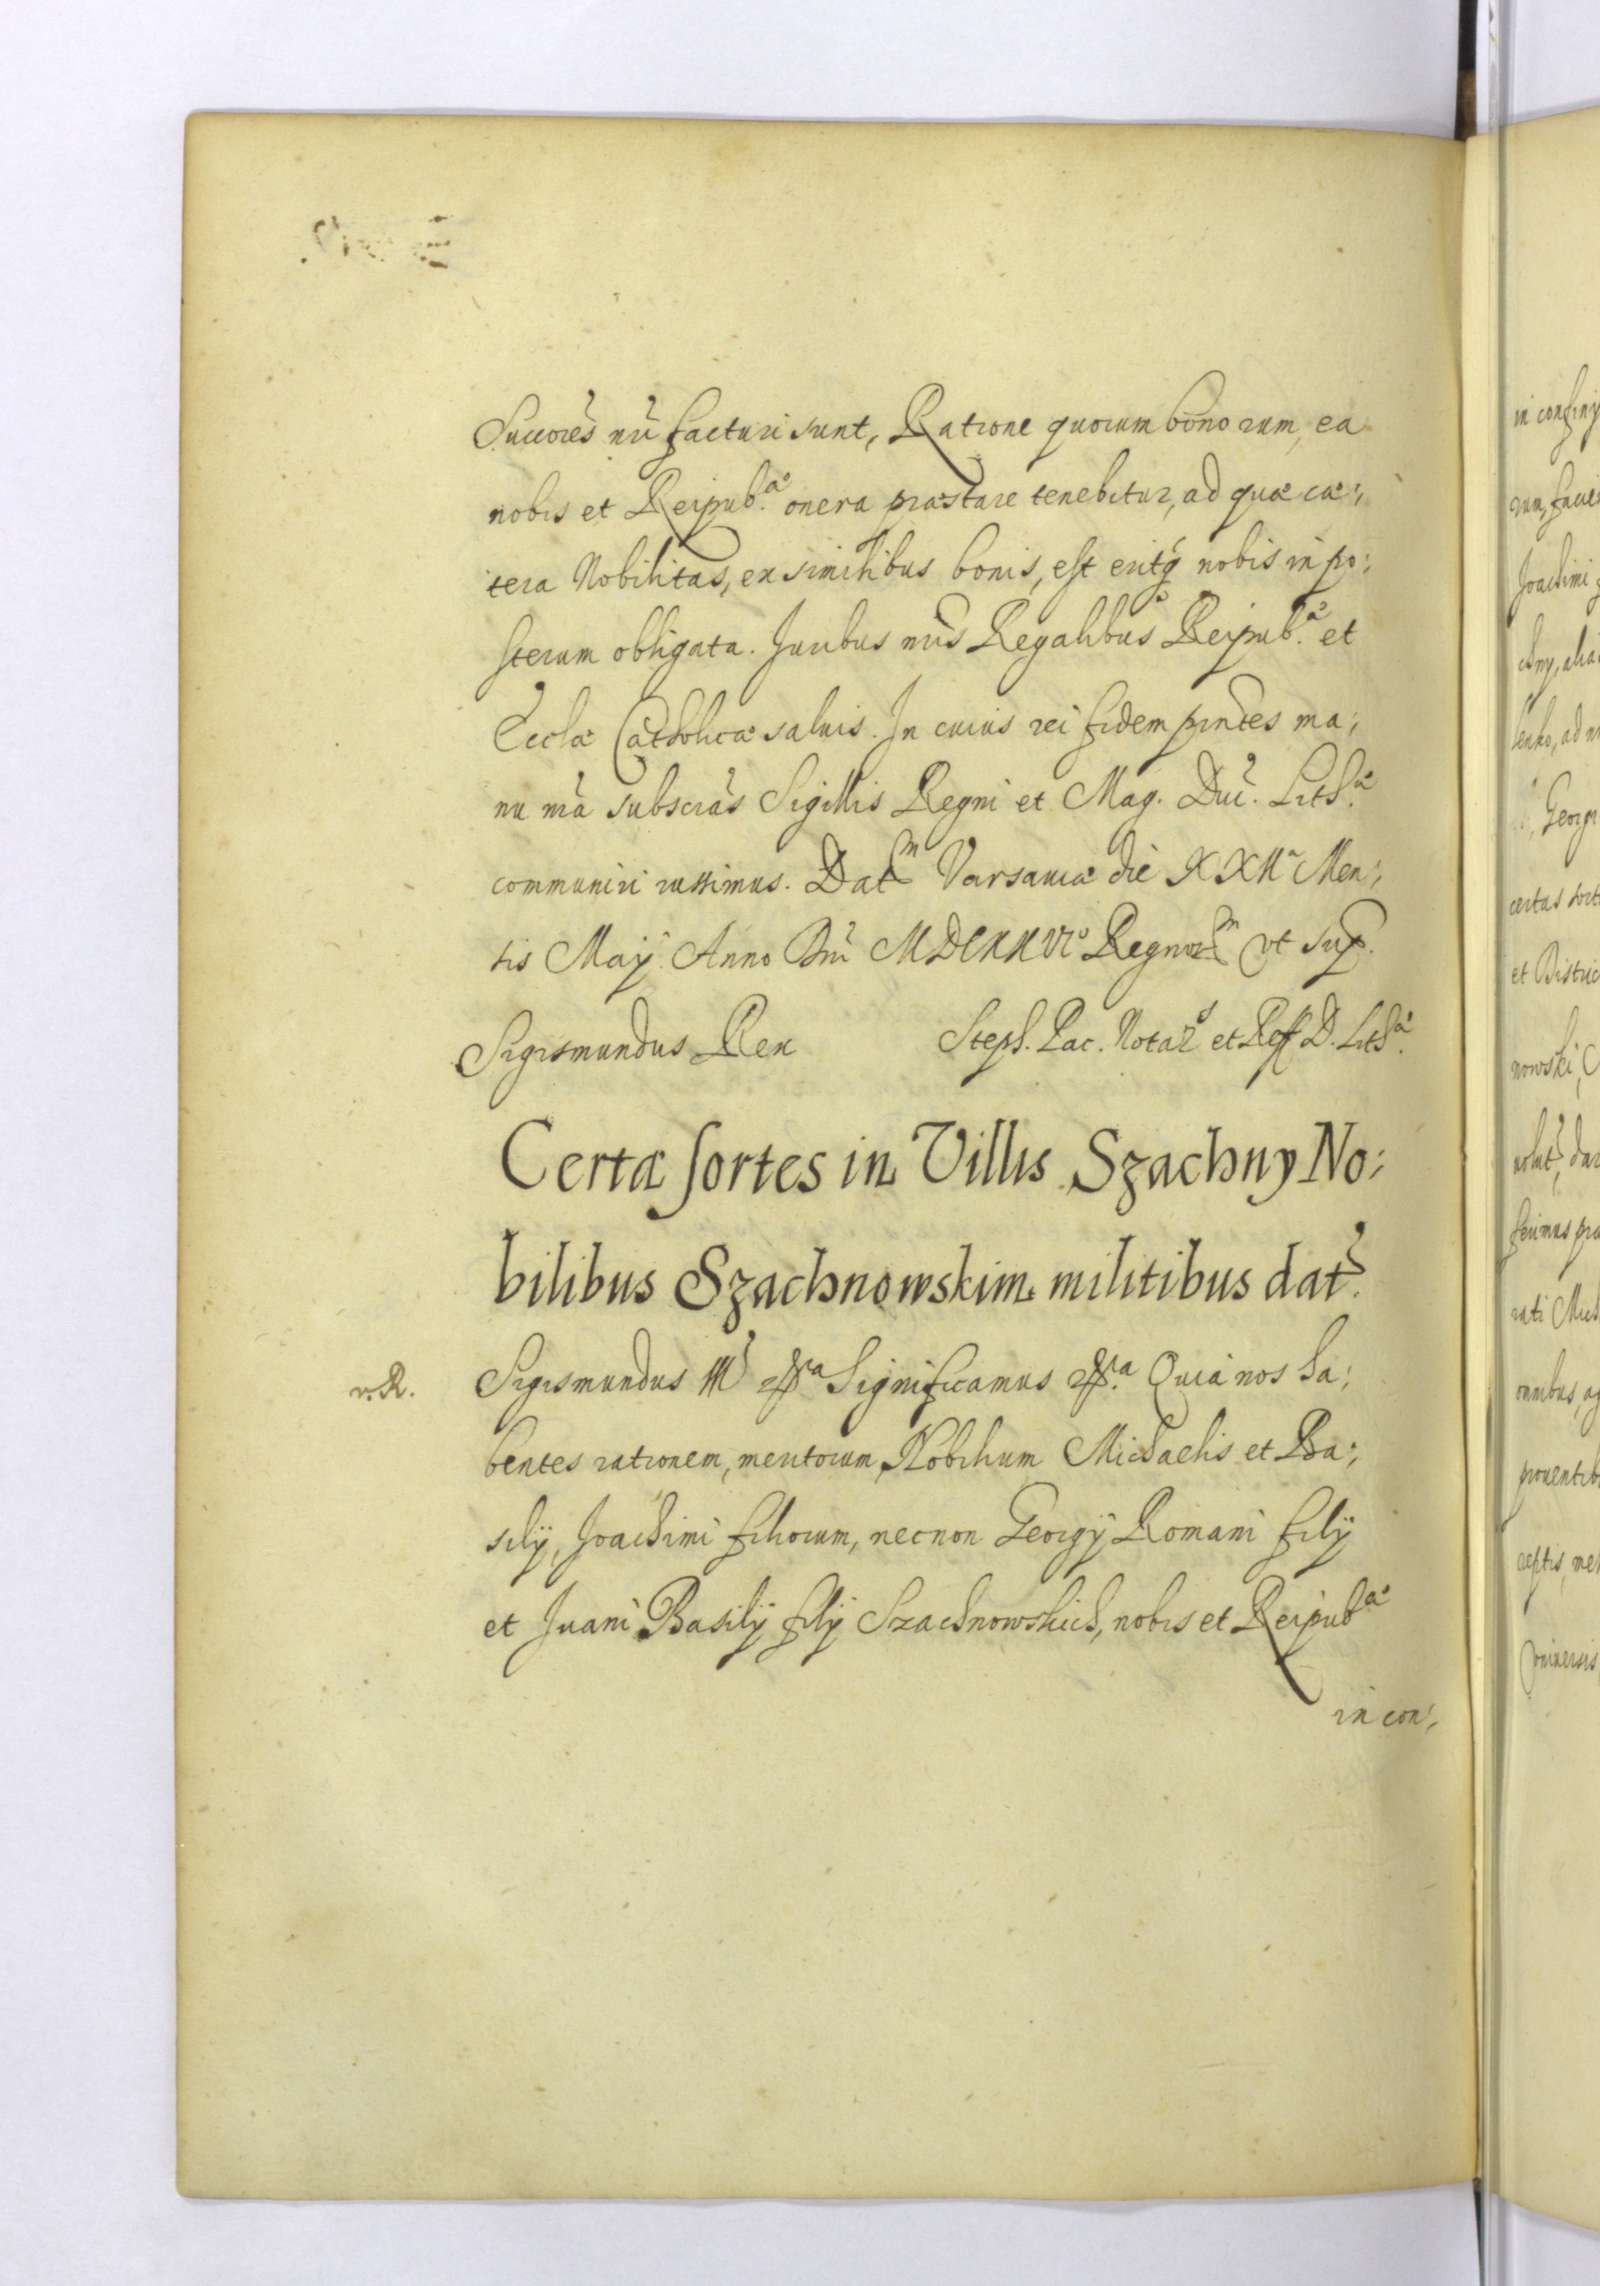 Succores nri facturi sunt, Ratione quorum bonorum, ea
nobis et Reipub.ae onera præstare tenebitur, ad quæ cæ:
tera Nobilitas, ex similibus bonis, est eritq nobis in po:
sterum obligata. Juribus nris Regalibus Reipub.ae et
Eccla Catholicæ salvis. In cuius rei fidem pnntes ma:
nu nra subscras Sigillis Regni et Mag. Duc. Lith.ae
communiri iussimus. Datm Varsaviæ die XXIIa Men:
sis Maij Anno Dni MDCXXVIo Regnorm ut sup.
Sigismundus Rex Steph. Pac. Notar9 et Reff D. Lith.ae
Certæ sortes in Villis Szachny No:
bilibus Szachnowskim militibus dat.
v.R. Sigismundus III &a Significamus &.a Quia nos ha:
bentes rationem, meritorum Nobilium Michaelis et Ba:
silij, Joachimi filiorum, necnon Georgij Romani filij
et Juani Basilij filij Szachnowskich, nobis et Reipubae
in con:
in confinij
Joachimi
et Distric
nowski,
Universis